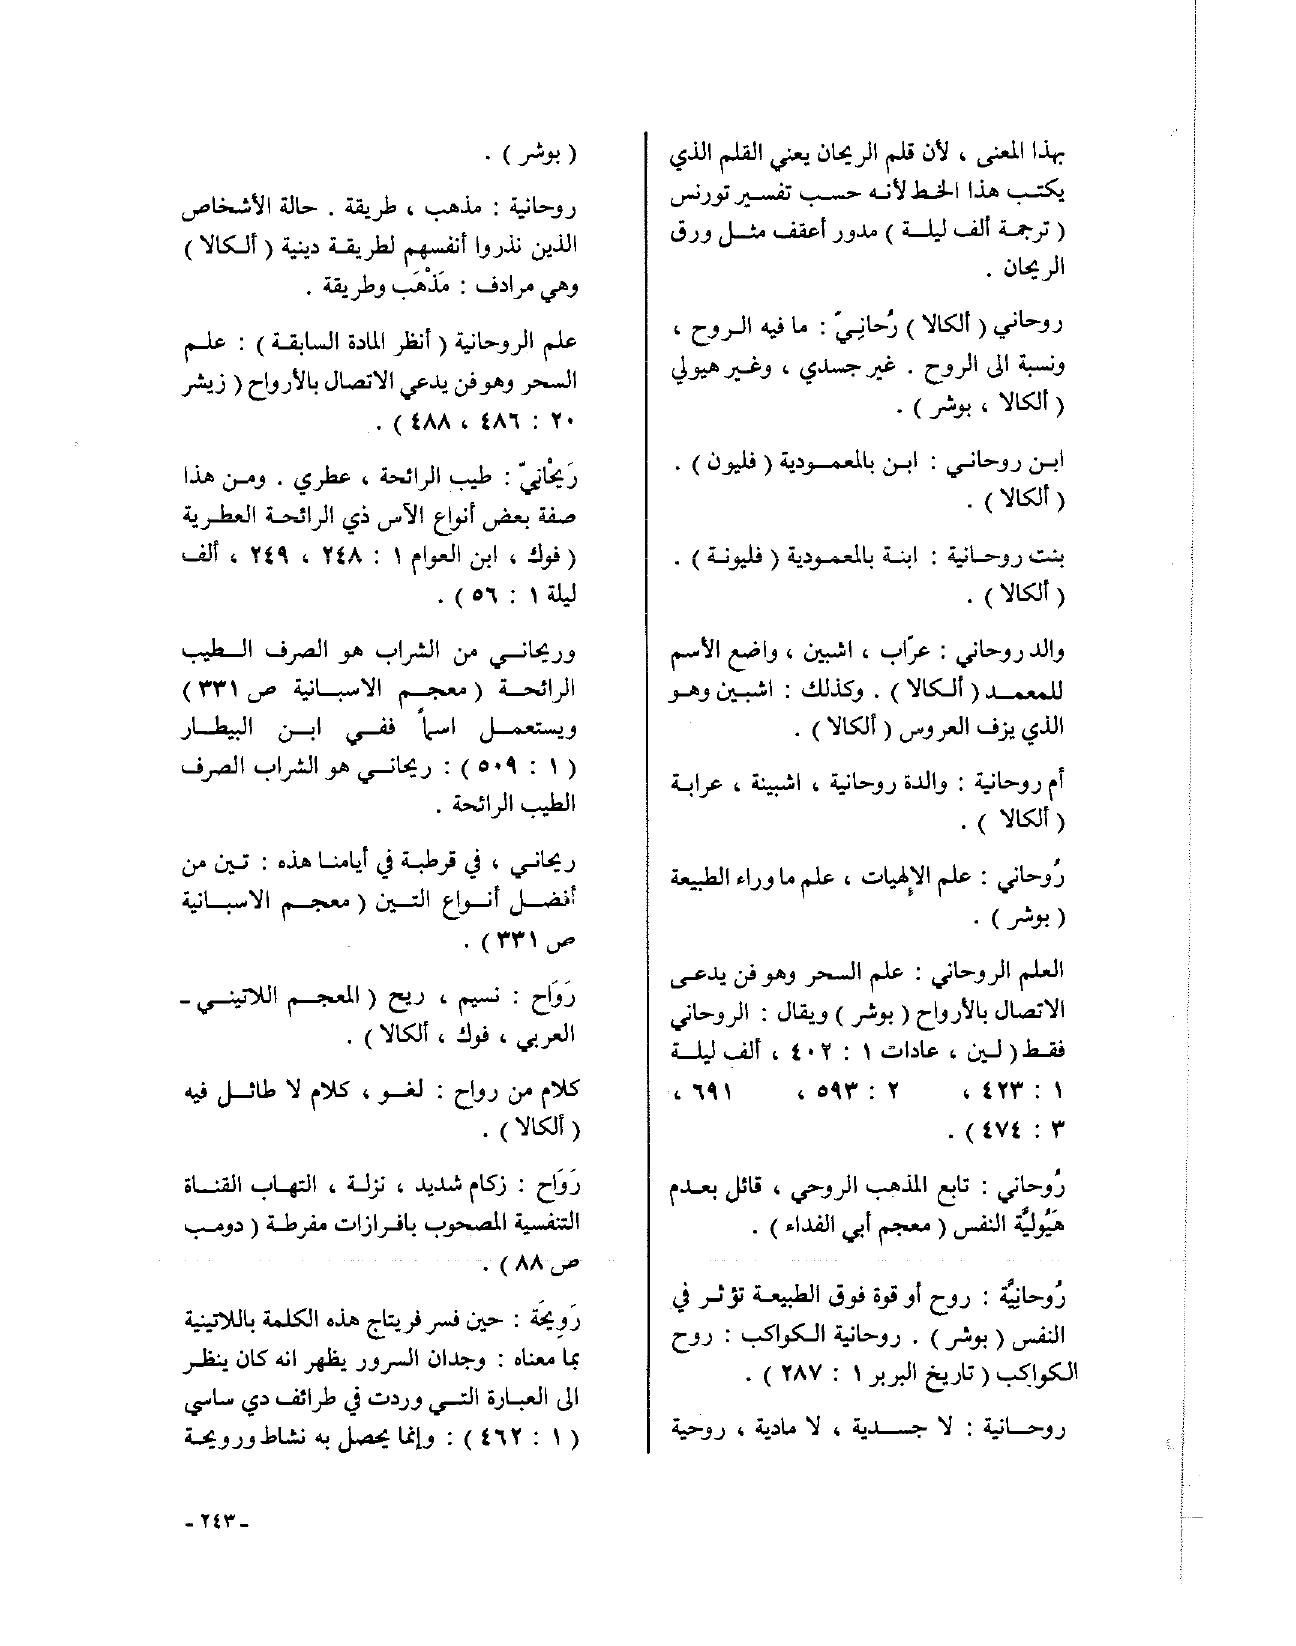 بهذا المعنى ، لأن قلم الريحان يعني القلم الذي
يكتب هذا الخط لأنه حسب تفسير تورنس
( ترجمة ألف ليلة ) مدور أعقف مثل ورق
الريحان .
روحاني ( ألكالا ) رُحانِيّ : ما فيه الروح ،
ونسبة الى الروح . غير جسدي ، وغير هيولي
( ألكالا ، بوشر ) .
ابن روحاني : ابن بالمعمودية ( فليون ) .
( ألكالا ) .
بنت روحانية : ابنة بالمعمودية ( فليونة ) .
( ألكالا ) .
والد روحاني : عرّاب ، اشبين ، واضع الأسم
للمعمد ( ألكالا ) . وكذلك : اشبين وهو
الذي يزف العروس ( ألكالا ) .
أم روحانية : والدة روحانية ، اشبينة ، عرابة
( ألكالا ) .
رُوحاني : علم الإلهيات ، علم ما وراء الطبيعة
( بوشر ) .
العلم الروحاني : علم السحر وهو فن يدعى
الاتصال بالأرواح ( بوشر ) ويقال : الروحاني
فقط ( لين ، عادات ١ : ٤٠٢ ، ألف ليلة
١ : ٤٢٣ ، ٢ : ٥٩٣ ، ٦٩١ ،
٣ : ٤٧٤ ) .
رُوحاني : تابع المذهب الروحي ، قائل بعدم
هَيُوليَّة النفس ( معجم أبي الفداء ) .
رُوحانيَّة : روح أو قوة فوق الطبيعة تؤثر في
النفس ( بوشر ) . روحانية الكواكب : روح
الكواكب ( تاريخ البربر ١ : ٢٨٧ ) .
روحانية : لا جسدية ، لا مادية ، روحية
( بوشر ) .
روحانية : مذهب ، طريقة . حالة الأشخاص
الذين نذروا أنفسهم لطريقة دينية ( ألكالا )
وهي مرادف : مَذْهَب وطريقة .
علم الروحانية ( أنظر المادة السابقة ) : علم
السحر وهو فن يدعي الاتصال بالأرواح ( زيشر
٢٠ : ٤٨٦ ، ٤٨٨ ) .
رَيْحْانيّ : طيب الرائحة ، عطري . ومن هذا
صفة بعض أنواع الآس ذي الرائحة العطرية
( فوك ، ابن العوام ١ : ٢٤٨ ، ٢٤٩ ، ألف
ليلة ١ : ٥٦ ) .
وريحاني من الشراب هو الصرف الطيب
الرائحة ( معجم الاسبانية ص ٣٣١ )
ويستعمل اسماً ففي ابن البيطار
( ١ : ٥٠٩ ) : ريحاني هو الشراب الصرف
الطيب الرائحة .
ريحاني ، في قرطبة في أيامنا هذه : تين من
أفضل أنواع التين ( معجم الاسبانية
ص ٣٣١ ) .
رَوَاح : نسيم ، ريح ( المعجم اللاتيني -
العربي ، فوك ، ألكالا ) .
كلام من رواح : لغو ، كلام لا طائل فيه
( ألكالا ) .
رَوَاح : زكام شديد ، نزلة ، التهاب القناة
التنفسية المصحوب بافرازات مفرطة ( دومب
ص ٨٨ ) .
رَوِيحَة : حين فسر فريتاج هذه الكلمة باللاتينية
بما معناه : وجدان السرور يظهر انه كان ينظر
الى العبارة التي وردت في طرائف دي ساسي
( ١ : ٤٦٢ ) : وإنما يحصل به نشاط ورويحة
- ٢٤٣ -